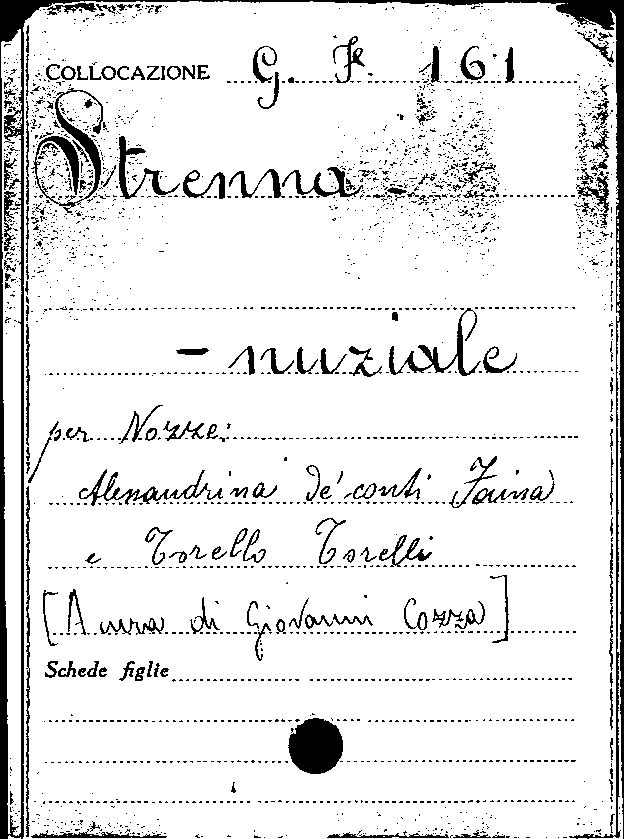 COLLOCAZIONE G. F. 161
Strenna -
- nuziale
per Nozze:
Alessandrina de' conti Faina
e Torello Torelli
[A cura di Giovanni Cozza]
Schede figlie